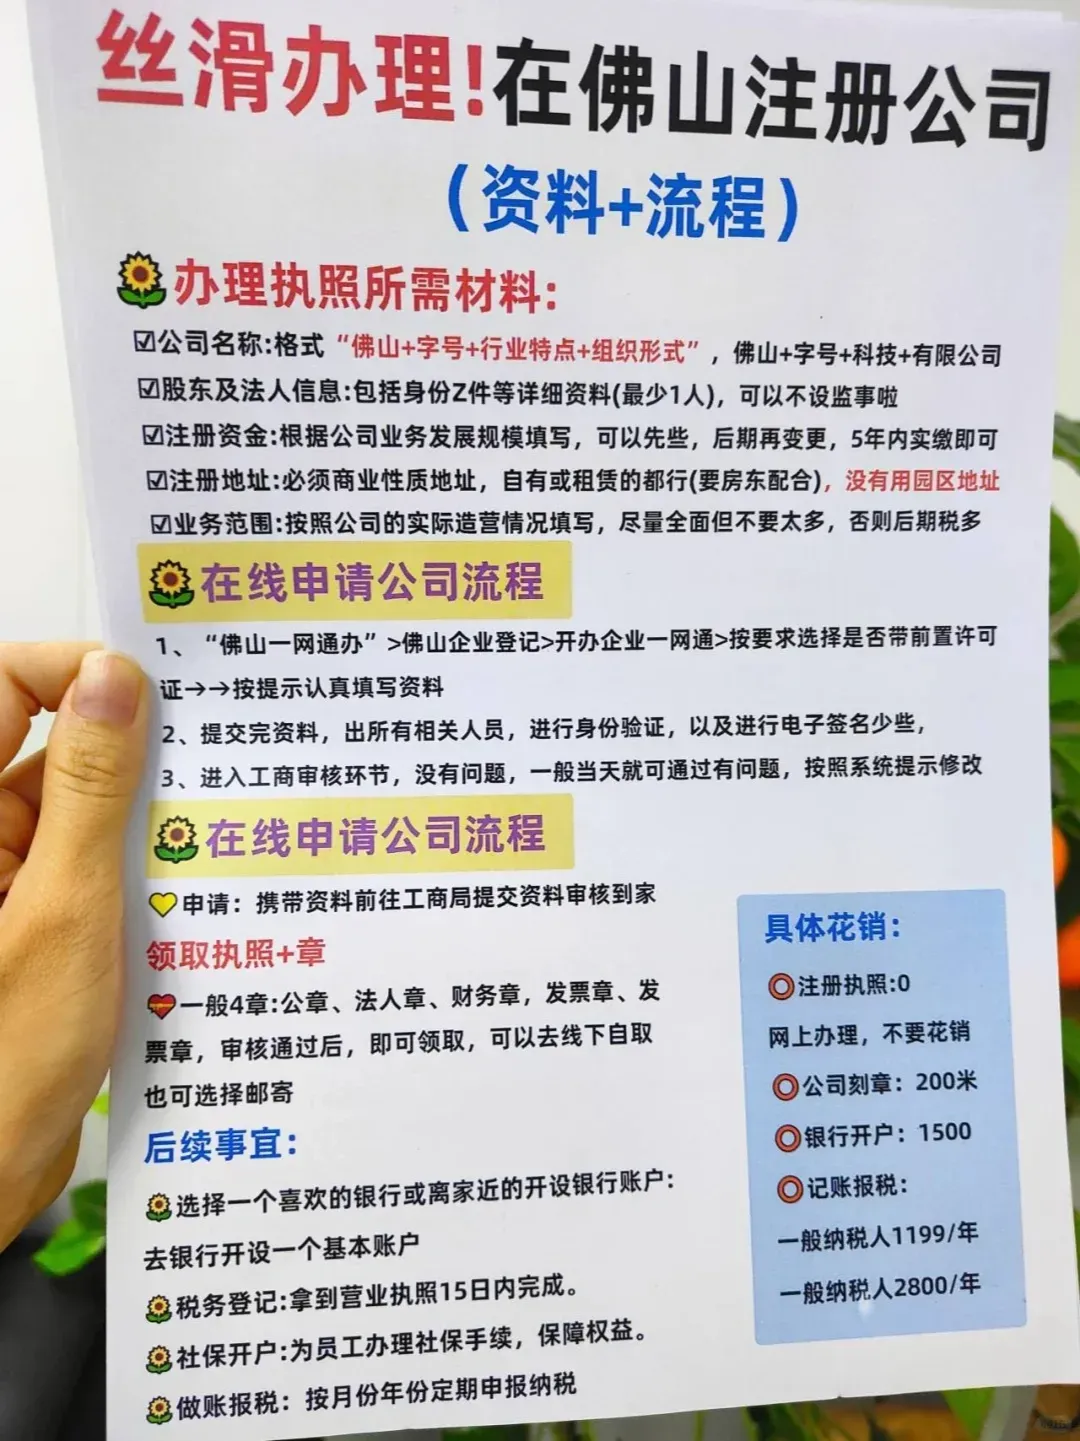 丝滑办理!在佛山注册公司
(资料+流程)
办理执照所需材料:
☑公司名称:格式“佛山+字号+行业特点+组织形式”，佛山+字号+科技+有限公司
☑股东及法人信息:包括身份Z件等详细资料(最少1人)，可以不设监事啦
☑注册资金:根据公司业务发展规模填写，可以先些，后期再变更，5年内实缴即可
☑注册地址:必须商业性质地址，自有或租赁的都行(要房东配合)，没有用园区地址
☑业务范围:按照公司的实际造营情况填写，尽量全面但不要太多，否则后期税多
在线申请公司流程
1、“佛山一网通办”>佛山企业登记>开办企业一网通>按要求选择是否带前置许可
证→→按提示认真填写资料
2、提交完资料，出所有相关人员，进行身份验证，以及进行电子签名少些，
3、进入工商审核环节，没有问题，一般当天就可通过有问题，按照系统提示修改
在线申请公司流程
申请：携带资料前往工商局提交资料审核到家
领取执照+章
一般4章:公章、法人章、财务章，发票章、发
票章，审核通过后，即可领取，可以去线下自取
也可选择邮寄
后续事宜:
选择一个喜欢的银行或离家近的开设银行账户:
去银行开设一个基本账户
税务登记:拿到营业执照15日内完成。
社保开户:为员工办理社保手续，保障权益。
做账报税：按月份年份定期申报纳税
具体花销:
注册执照:0
网上办理，不要花销
公司刻章：200米
银行开户：1500
记账报税:
一般纳税人1199/年
一般纳税人2800/年